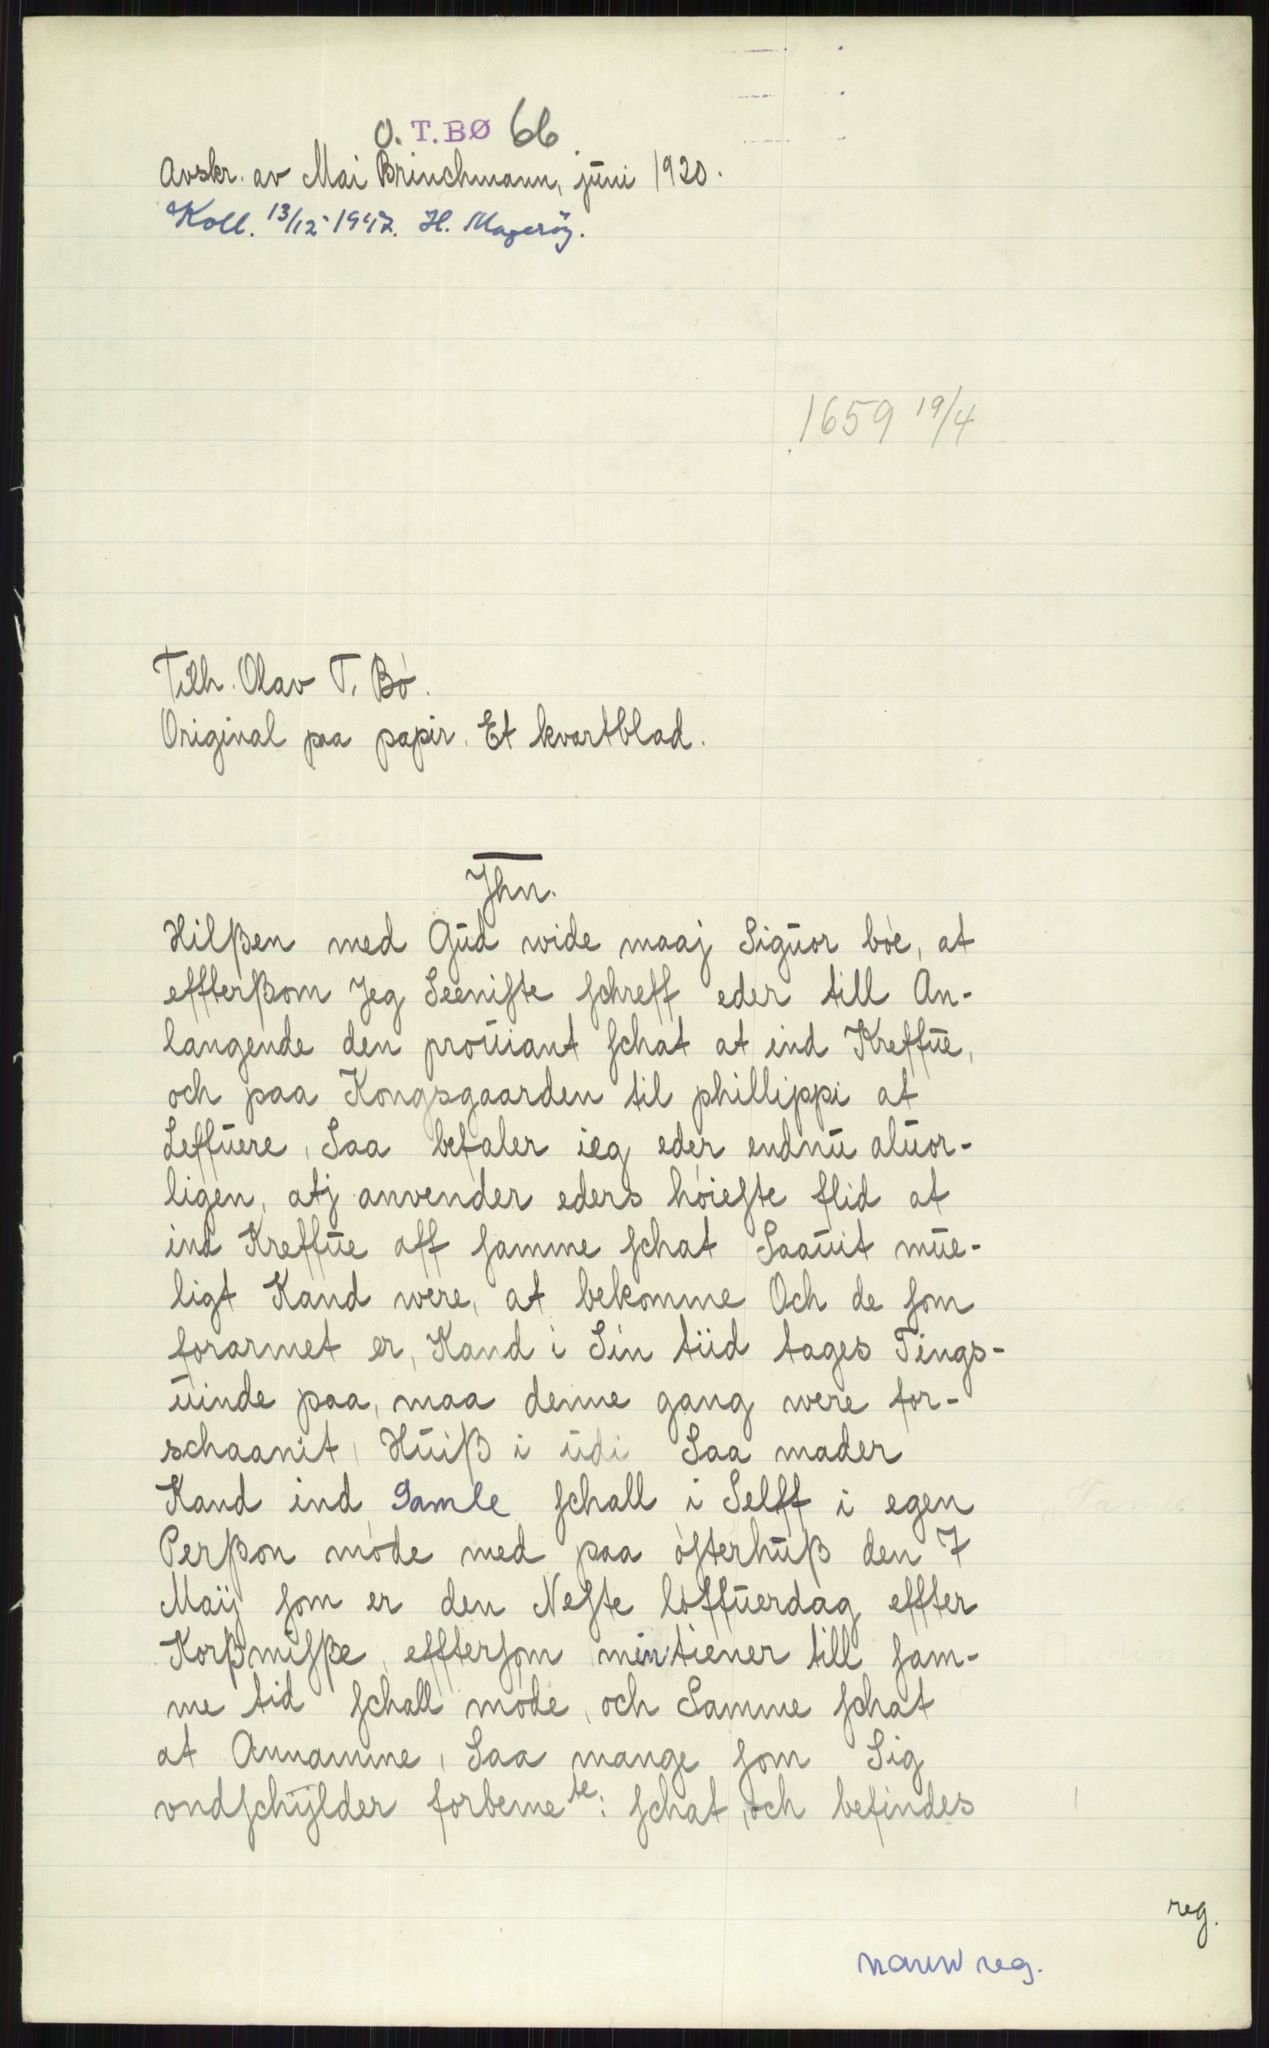 O. T.BØ 66
Avskr. av Mai Brinchmann, juni 1920.
Koll. 13/12 1947. H. Magerøy.
1659 19/4
Tilh. Olav T. Bø.
Original paa papir. Et kvartblad.
Jhn.
Hilßen med Gŭd wide maaj Sigŭor bøe, at
effterßom Jeg Seeniſte ſchreff eder till An-
langende den proŭiant ſchat at ind Kreffŭe,
och paa Kongsgaarden til phillippi at
Leffŭere, Saa befaler ieg eder endnŭ alŭor-
ligen, atj anvender eders høieſte flid at
ind Kreffŭe aff ſamme ſchat Saaŭit mŭe-
ligt Kand were, at bekomme Och de ſom
forarmet er, Kand i Sin tiid tages Tings-
ŭinde paa, maa denne gang were for-
schaanit, Hŭiß i ŭdi Saa mader
Kand ind Samle ſchall i Selff i egen
Perßon møde med paa øſterhŭß den 7
Maÿ ſom er den Neſte løffŭerdag effter
Korßmiſße, effterſom min tiener till ſam-
me tid ſchall møde, och Samme ſchat
at Annamme, Saa mange ſom Sig
vndſchÿlder forbemeᵗᵉ: ſchat, och befindes
reg.
navn reg.